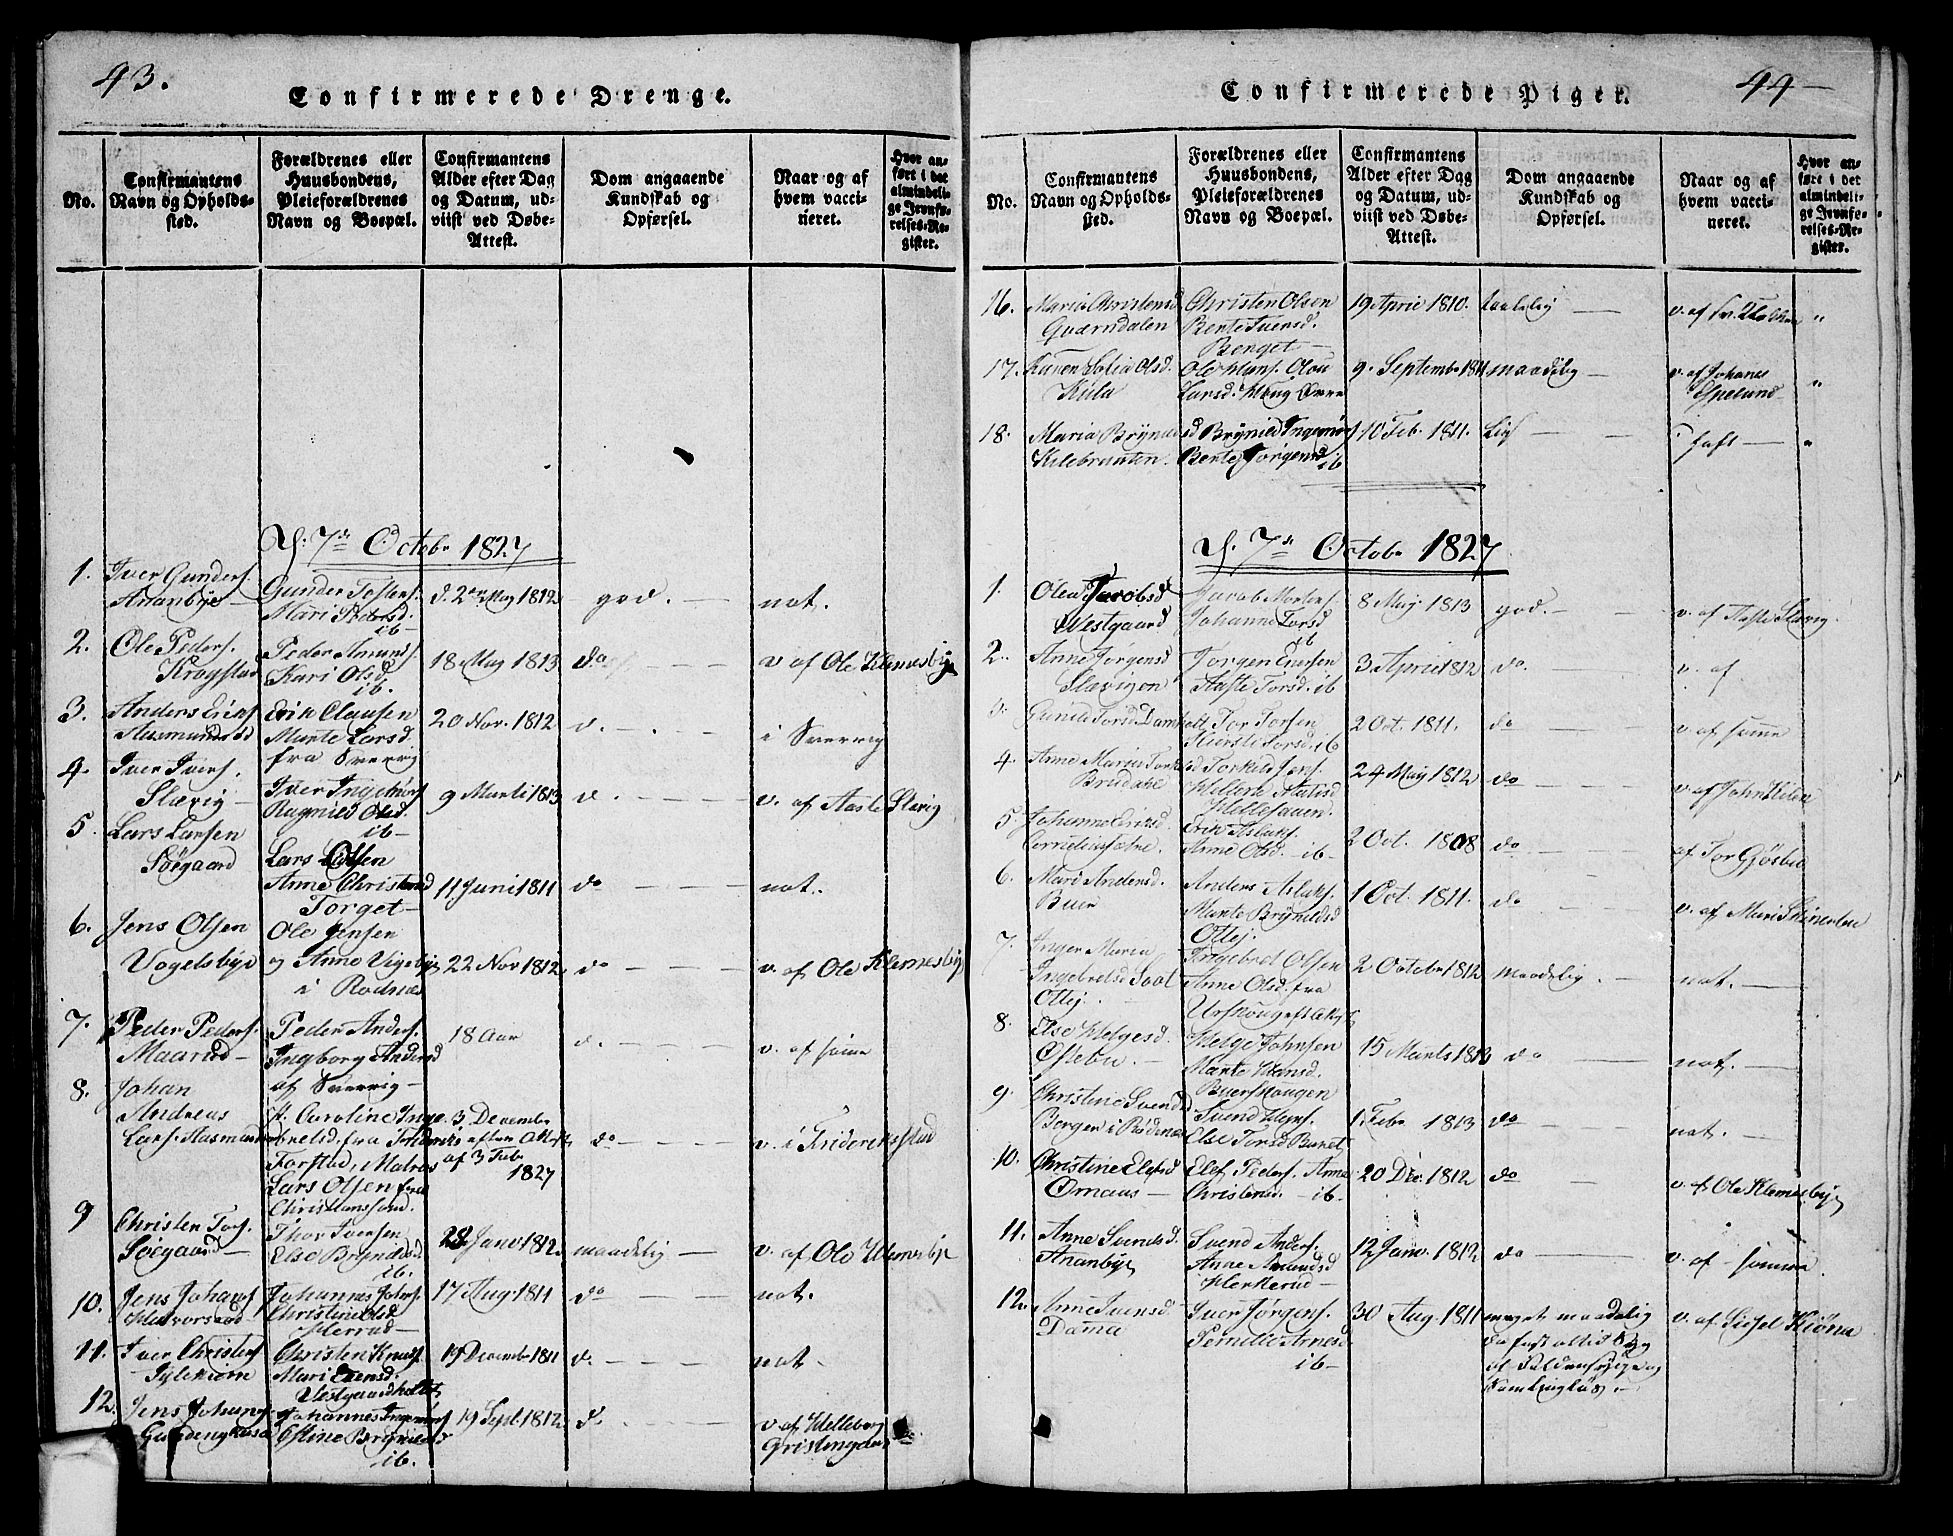 43.
Confirmerede Drenge.
No.
Confirmantens
Navn og Opholds-
sted.
Forældrenes eller
Huusbondens,
Pleieforældrenes
Navn og Boepæl.
Confirmantens
Alder efter Dag
og Datum, ud-
viist ved Døbe-
Attest.
Dom angaaende
Kundskab og
Opførsel.
Naar og af
hvem vacci-
neret.
Hvor an-
ført i det
almindeli-
ge Jevnfø-
relses-Re-
gister.
7de Octobr 1827
1. Iver Gunders.
Ananbye
Gunder Tostens.
Mari
ib
d. 2den May 1812
god.
nat.
2. Ole Peders.
Krogstad
Peder Amunds.
Kari Olsd.
ib.
18 May 1813
do
v af Ole Klemesbye
3. Anders Eriks.
Aasmundrød
Erik Clausen
Marte Larsd.
fra Sverrig
20 Nov. 1812
do
i Sverrig
4. Iver Ivers.
Slævig
Iver Ingemors
Ragnild Olsd.
ib
9 Marti 1813
do
v. af Aaste Slævig
5. Lars Larsen
Søegaard
Lars Olsen
Anne Christensd
Torget
11 Juni 1811
do
nat.
6. Jens Olsen
Vogelsbye
Ole Jensen
og Anne Vigebye
i Rødnæs
22 Nov 1812
do
v. af Ole Klemesbye
7. Peder Peders.
Maarud
Peder Anders.
Ingborg Andersd
af Sverrig
18 Aar
do
v. af samme
8. Johan
Andreas
Lars. Aasmund
Caroline Inge
bretsd. fra Fridrik
stad, Matros
Lars Olsen fra
Christianssand.
3 December
efter Attest
af 3 Feb
1827
do
v. i Frideriksstad
9 Christen Tors.
Søegaard
Thor Iversen
Else Brynildsd
ib.
28 Janv 1812
maadelig
v. af Ole Klemesbye
10. Jens Johans
Halvorsrød
Johannes Johns.
Christine Olsd
Herrud
17 Aug. 1811
do
nat.
11. Iver Christens
Christen Knuds.
Mari Evensd.
Vestgaardholtet
19 December 1811
do
nat.
12. Jens Johans
Johannes Ingemors
Eline Brynildsd
ib.
19 Sept. 1812
do
v af Helleborg
44
Confirmerede Piger.
No.
Confirmantens
Navn og Opholds-
sted.
Forældrenes eller
Huusbondens,
Pleieforældrenes
Navn og Boepæl.
Confirmantens
Alder efter Dag
og Datum, ud-
viist ved Døbe-
Attest.
Dom angaaende
Kundskab og
Opførsel.
Naar og af
hvem vacci-
neret.
Hvor an-
ført i det
almindeli-
ge Jevnfø-
relses-Re-
gister.
16. Maria Christensd
Quærndalen
Christen Olsen
Bente Svensd.
Berget
19 April 1810.
taalelig
v. af
"
17. Karen Sofia Olsd.
Kula
Ole Hans. Olea
Larsd. Haug
9. September 1811
maadelig
v. af Johanes
Espelund
"
18. Maria Brynilds
Kilebraaten.
Brynild Ingemors
Bente Jørgensd
ib
10 Feb. 1811.
"
7de Octobr 1827
1. Olea Jacobsd
Westgaard
Jacob Mortens.
Johanne Larsd
ib
8 May 1813
god.
v. af Aaste Slævig.
2. Anne Jørgensd
Slævigen
Jørgen Enersen
Aaste Torsd. ib
3 April 1812
do
v. af
3. Gunild Torsd. Damholt
Tor Torsen
Kiersti Torsd. ib
2 Oct. 1811.
do
v. af samme
4. Anne Maria Torkilds
Brudalie
Torkild Jens.
Hellene
Hellesaaen.
24 May 1812
do
v. af John Kilen
5. Johanne Eriksd.
Corneliusætre.
Erik Aslaks.
Anne Olsd. ib
2 Oct. 1808
do
af Tor Gjøsbu
6. Mari Andersd.
Buer
Anders Aslaks.
Marte Brynildsd
Ottej.
1 Oct. 1811.
do
v. af Mari
7. Inger Maria
Ingebretsd.
Ottej.
Ingebret Olsen
Anne Olsd. fra
Urskoug
2 Octobr 1812
maadelig.
nat.
8. Else Helgesd.
Østebu.
Helge Johnsen
Marte Hansd.
Buerskougen
15 Marts 1812
do
nat.
9. Christine Svendsd
Bergen i Rødenæs
Svend Hans.
Else Torsd Buret
1 Feb. 1813
do
nat.
10. Christine Elefsd
Ørnaas
Elef Peders. Anne
Christensd. ib.
20 Dec. 1812
do
v. af Ole Klemesbye
11. Anne Svendsd.
Ananbye
Svend Anders.
Anne Amundsd
Herkerud
12 Janv. 1812
do
v. af samme.
12. Anne Iversd
Damme
Iver Jørgens.
Pernille Arnesd
ib
30 Aug. 1811
meget maadelig
v. af Sissel Kiøna